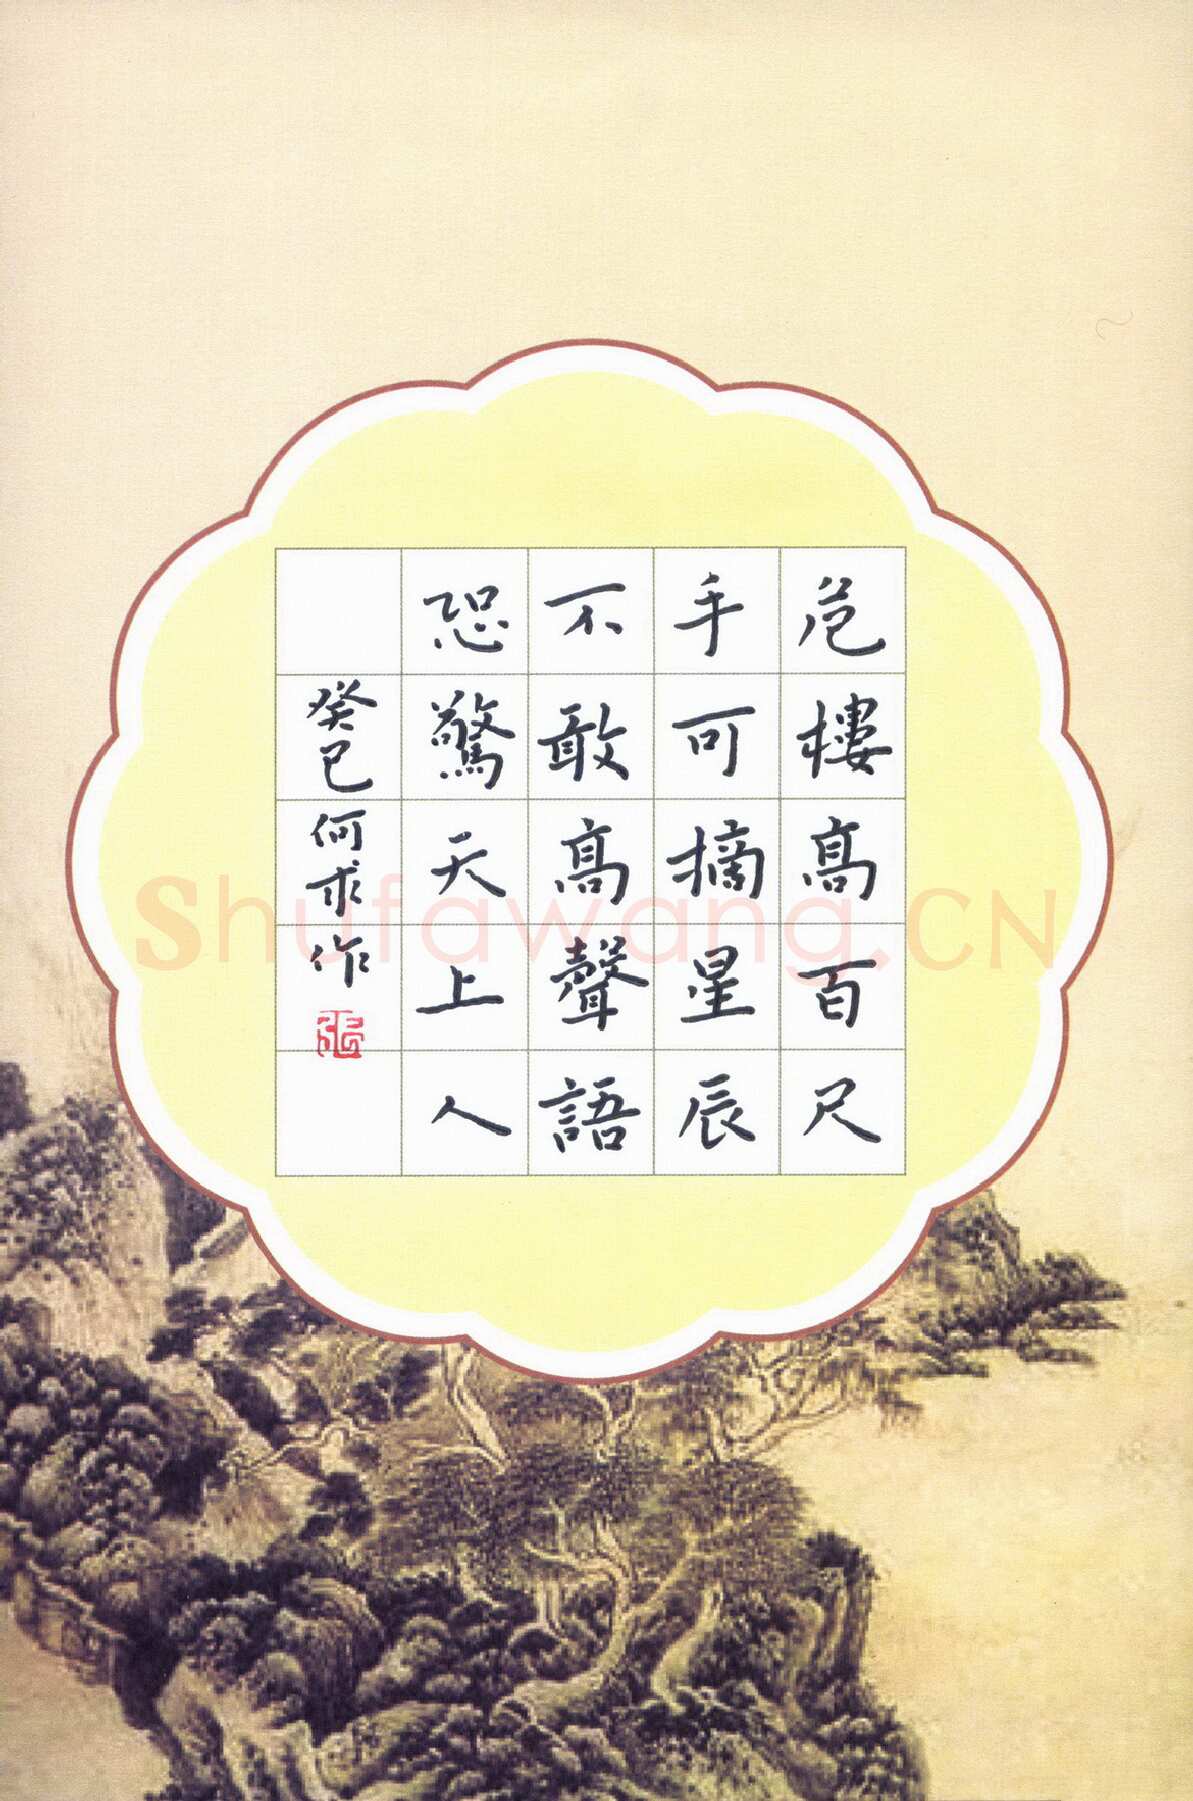 危樓髙百尺
手可摘星辰
不敢髙聲語
恐驚天上人
癸巳何求作
張
Shufawang.CN